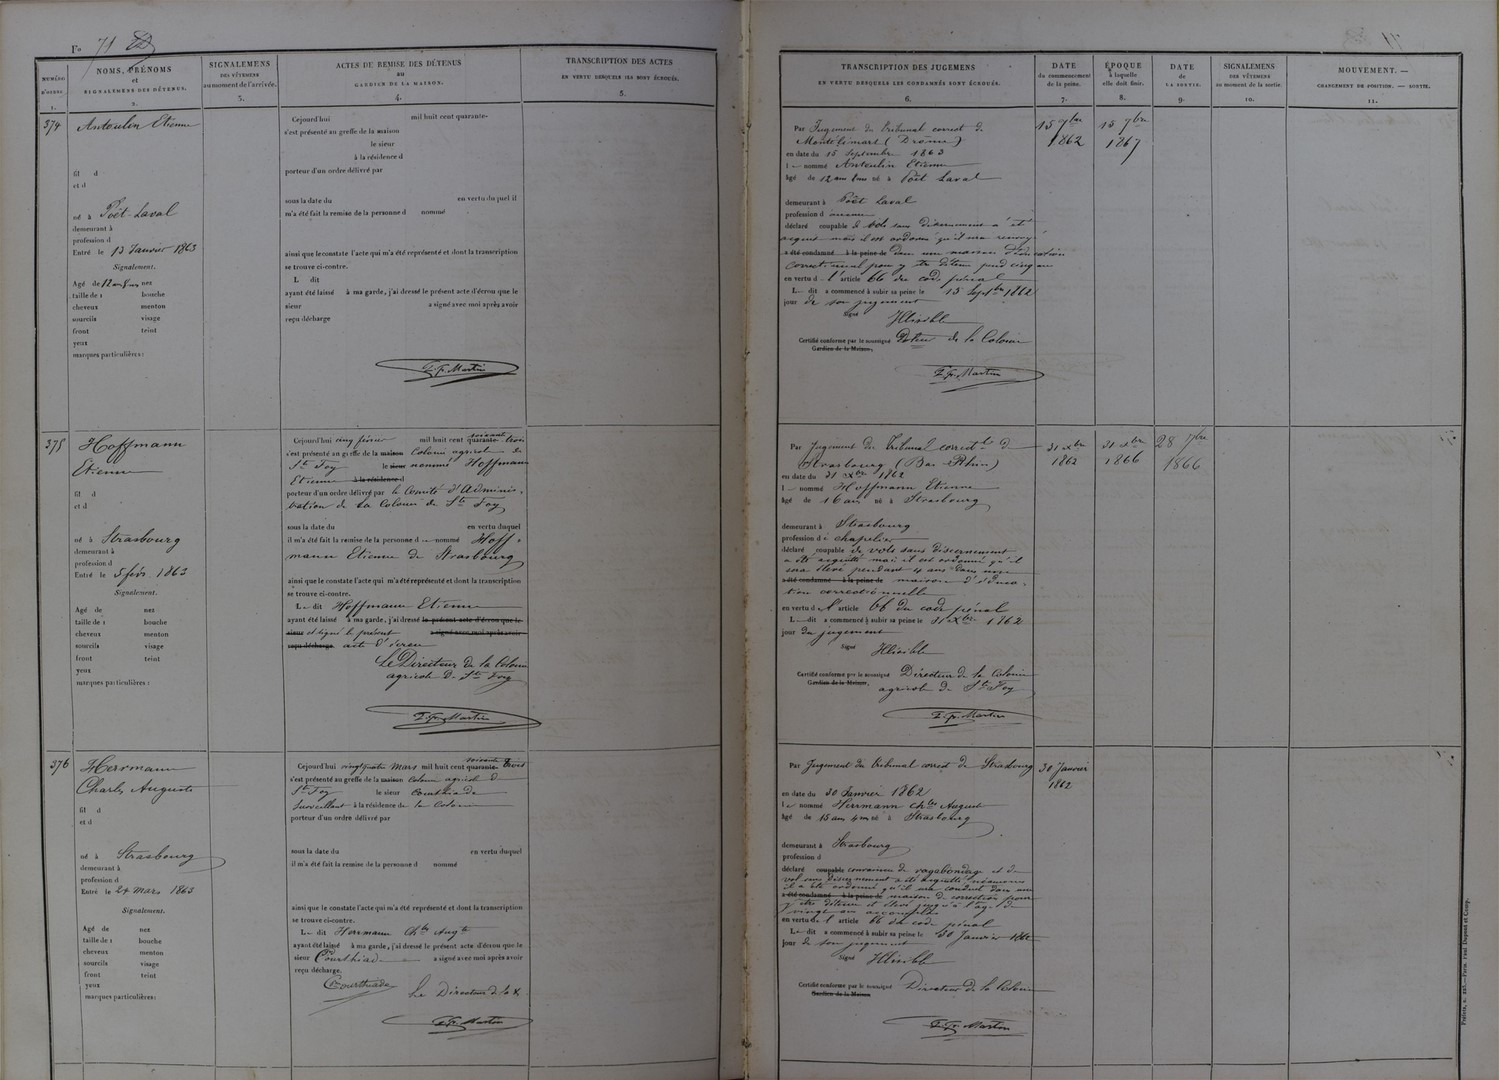 Fo 71
NUMÉRO D'ORDRE 1.
NOMS, PRÉNOMS
et
SIGNALEMENS DES DÉTENUS.
2.
SIGNALEMENS
DES VÊTEMENS
au moment de l'arrivée.
3.
ACTES DE REMISE DES DÉTENUS
au
GARDIEN DE LA MAISON.
4.
TRANSCRIPTION DES ACTES
EN VERTU DESQUELS ILS SONT ÉCROUÉS.
5.
374
Antoulin Etienne
fil d
et d
né à Poët-Laval
demeurant à
profession d
Entré le 13 Janvier 1863
Signalement.
Agé de 12 ans nez
taille de 1 bouche
cheveux menton
sourcils visage
front teint
yeux
marques particulières:
Cejourd'hui mil huit cent quarante-
s'est présenté au greffe de la maison
le sieur
à la résidence d
porteur d'un ordre délivré par
sous la date du en vertu du quel il
m'a été fait la remise de la personne d nommé
ainsi que le constate l'acte qui m'a été représenté et dont la transcription
se trouve ci-contre.
L dit
ayant été laissé à ma garde, j'ai dressé le présent acte d'écrou que le
sieur a signé avec moi après avoir
reçu décharge
Martin
375
Hoffmann
Etienne
fil d
et d
né à Strasbourg
demeurant à
profession d
Entré le 5 fév. 1863
Signalement.
Agé de nez
taille de 1 bouche
cheveux menton
sourcils visage
front teint
yeux
marques particulières :
Cejourd'hui cinq février mil huit cent quarante- soixante trois
s'est présenté au greffe de la maison Colonie agricole de
Ste Foy le sieur nommé Hoffmann
Etienne à la résidence d
porteur d'un ordre délivré par le Comité d'Adminis-
tration de la Colonie de Ste Foy
sous la date du en vertu duquel
il m'a été fait la remise de la personne d nommé Hoff-
mann Etienne de Strasbourg
ainsi que le constate l'acte qui m'a été représenté et dont la transcription
se trouve ci-contre.
Le dit Hoffmann Etienne
ayant été laissé à ma garde, j'ai dressé le présent acte d'écrou que le
sieur et signé le présent a signé avec moi après avoir
reçu décharge acte d'écrou
Le Directeur de la Colonie
agricole de Ste Foy
Martin
376
Herrmann
Charles Auguste
fil d
et d
né à Strasbourg
demeurant à
profession d
Entré le 24 Mars 1863
Signalement.
Agé de nez
taille de 1 bouche
cheveux menton
sourcils visage
front teint
yeux
marques particulières:
Cejourd'hui vingt quatre Mars mil huit cent quarante- soixante trois
s'est présenté au greffe de la maison Colonie agricole d
Ste Foy le sieur Courthiade
Surveillant à la résidence de la Colonie
porteur d'un ordre délivré par
sous la date du en vertu duquel
il m'a été fait la remise de la personne d nommé
ainsi que le constate l'acte qui m'a été représenté et dont la transcription
se trouve ci-contre.
Le dit Herrmann Chles Augte
ayant été laissé à ma garde, j'ai dressé le présent acte d'écrou que le
sieur Courthiade a signé avec moi après avoir
reçu décharge.
Courthiade
Le Directeur de la
Martin
TRANSCRIPTION DES JUGEMENS
EN VERTU DESQUELS LES CONDAMNÉS SONT ÉCROUÉS.
6.
DATE
du commencement
de la peine.
7.
ÉPOQUE
à laquelle
elle doit finir.
8.
DATE
de
LA SORTIE.
9.
SIGNALEMENS
DES VÊTEMENS
au moment de la sortie.
10.
MOUVEMENT. —
CHANGEMENT DE POSITION. — SORTIE.
11.
Par Jugement du Tribunal correct de
Montélimart (Drôme)
en date du 15 Septembre 1863
le nommé Antoulin Etienne
âgé de 12 ans né à Poët Laval
demeurant à Poët Laval
profession d aucune
déclaré coupable de vols sans discernement a été
acquitté mais il est ordonné qu'il sera renvoyé
a été condamné à la peine de dans une maison d'éducation
correctionnel pour y être détenu pend cinq ans
en vertu d l'article 66 du code pénal
L dit a commencé à subir sa peine le 15 Septbre 1862
jour de son jugement
Signé Illisible
Certifié conforme par le soussigné de la Colonie
Gardien de la Maison,
Martin
15 7bre 1862
15 7bre 1867
Par Jugement du Tribunal correctel de
Strasbourg (Bas Rhin)
en date du 31 Xbre 1862
l nommé Hoffmann Etienne
âgé de 16 ans né à Strasbourg
demeurant à Strasbourg
profession de chapelier
déclaré coupable de vols sans discernement
a été acquitté mais il est ordonné qu'il
sera élevé pendant 4 ans dans une
a été condamné à la peine de maison d'éduca-
tion correctionnelle
en vertu de l'article 66 du code pénal
L dit a commencé à subir sa peine le 31 Xbre 1862
jour du jugement
Signé Illisible
Certifié conforme par le soussigné Directeur de la Colonie
Gardien de la Maison, agricole de Ste Foy
Martin
31 Xbre 1862
31 Xbre 1866
28 7bre 1866
Par Jugement du tribunal correct de Strasbourg
en date du 30 Janvier 1862
le nommé Herrmann Chles August
âgé de 15 ans 4 m né à Strasbourg
demeurant à Strasbourg
profession d
déclaré coupable convaincu de vagabondage et de
vol sans discernement a été acquitté néanmoins
il a été ordonné qu'il sera conduit dans une
a été condamné à la peine de maison de correction pour
y être détenu et élevé jusqu'à l'age de
vingt ans accomplis
en vertu de l'article 66 du code pénal
Le dit a commencé à subir sa peine le 30 Janvier 1862
jour de son jugement
Signé Illisible
Certifié conforme par le soussigné Directeur de la Colonie
Gardien de la Maison
Martin
30 Janvier 1862